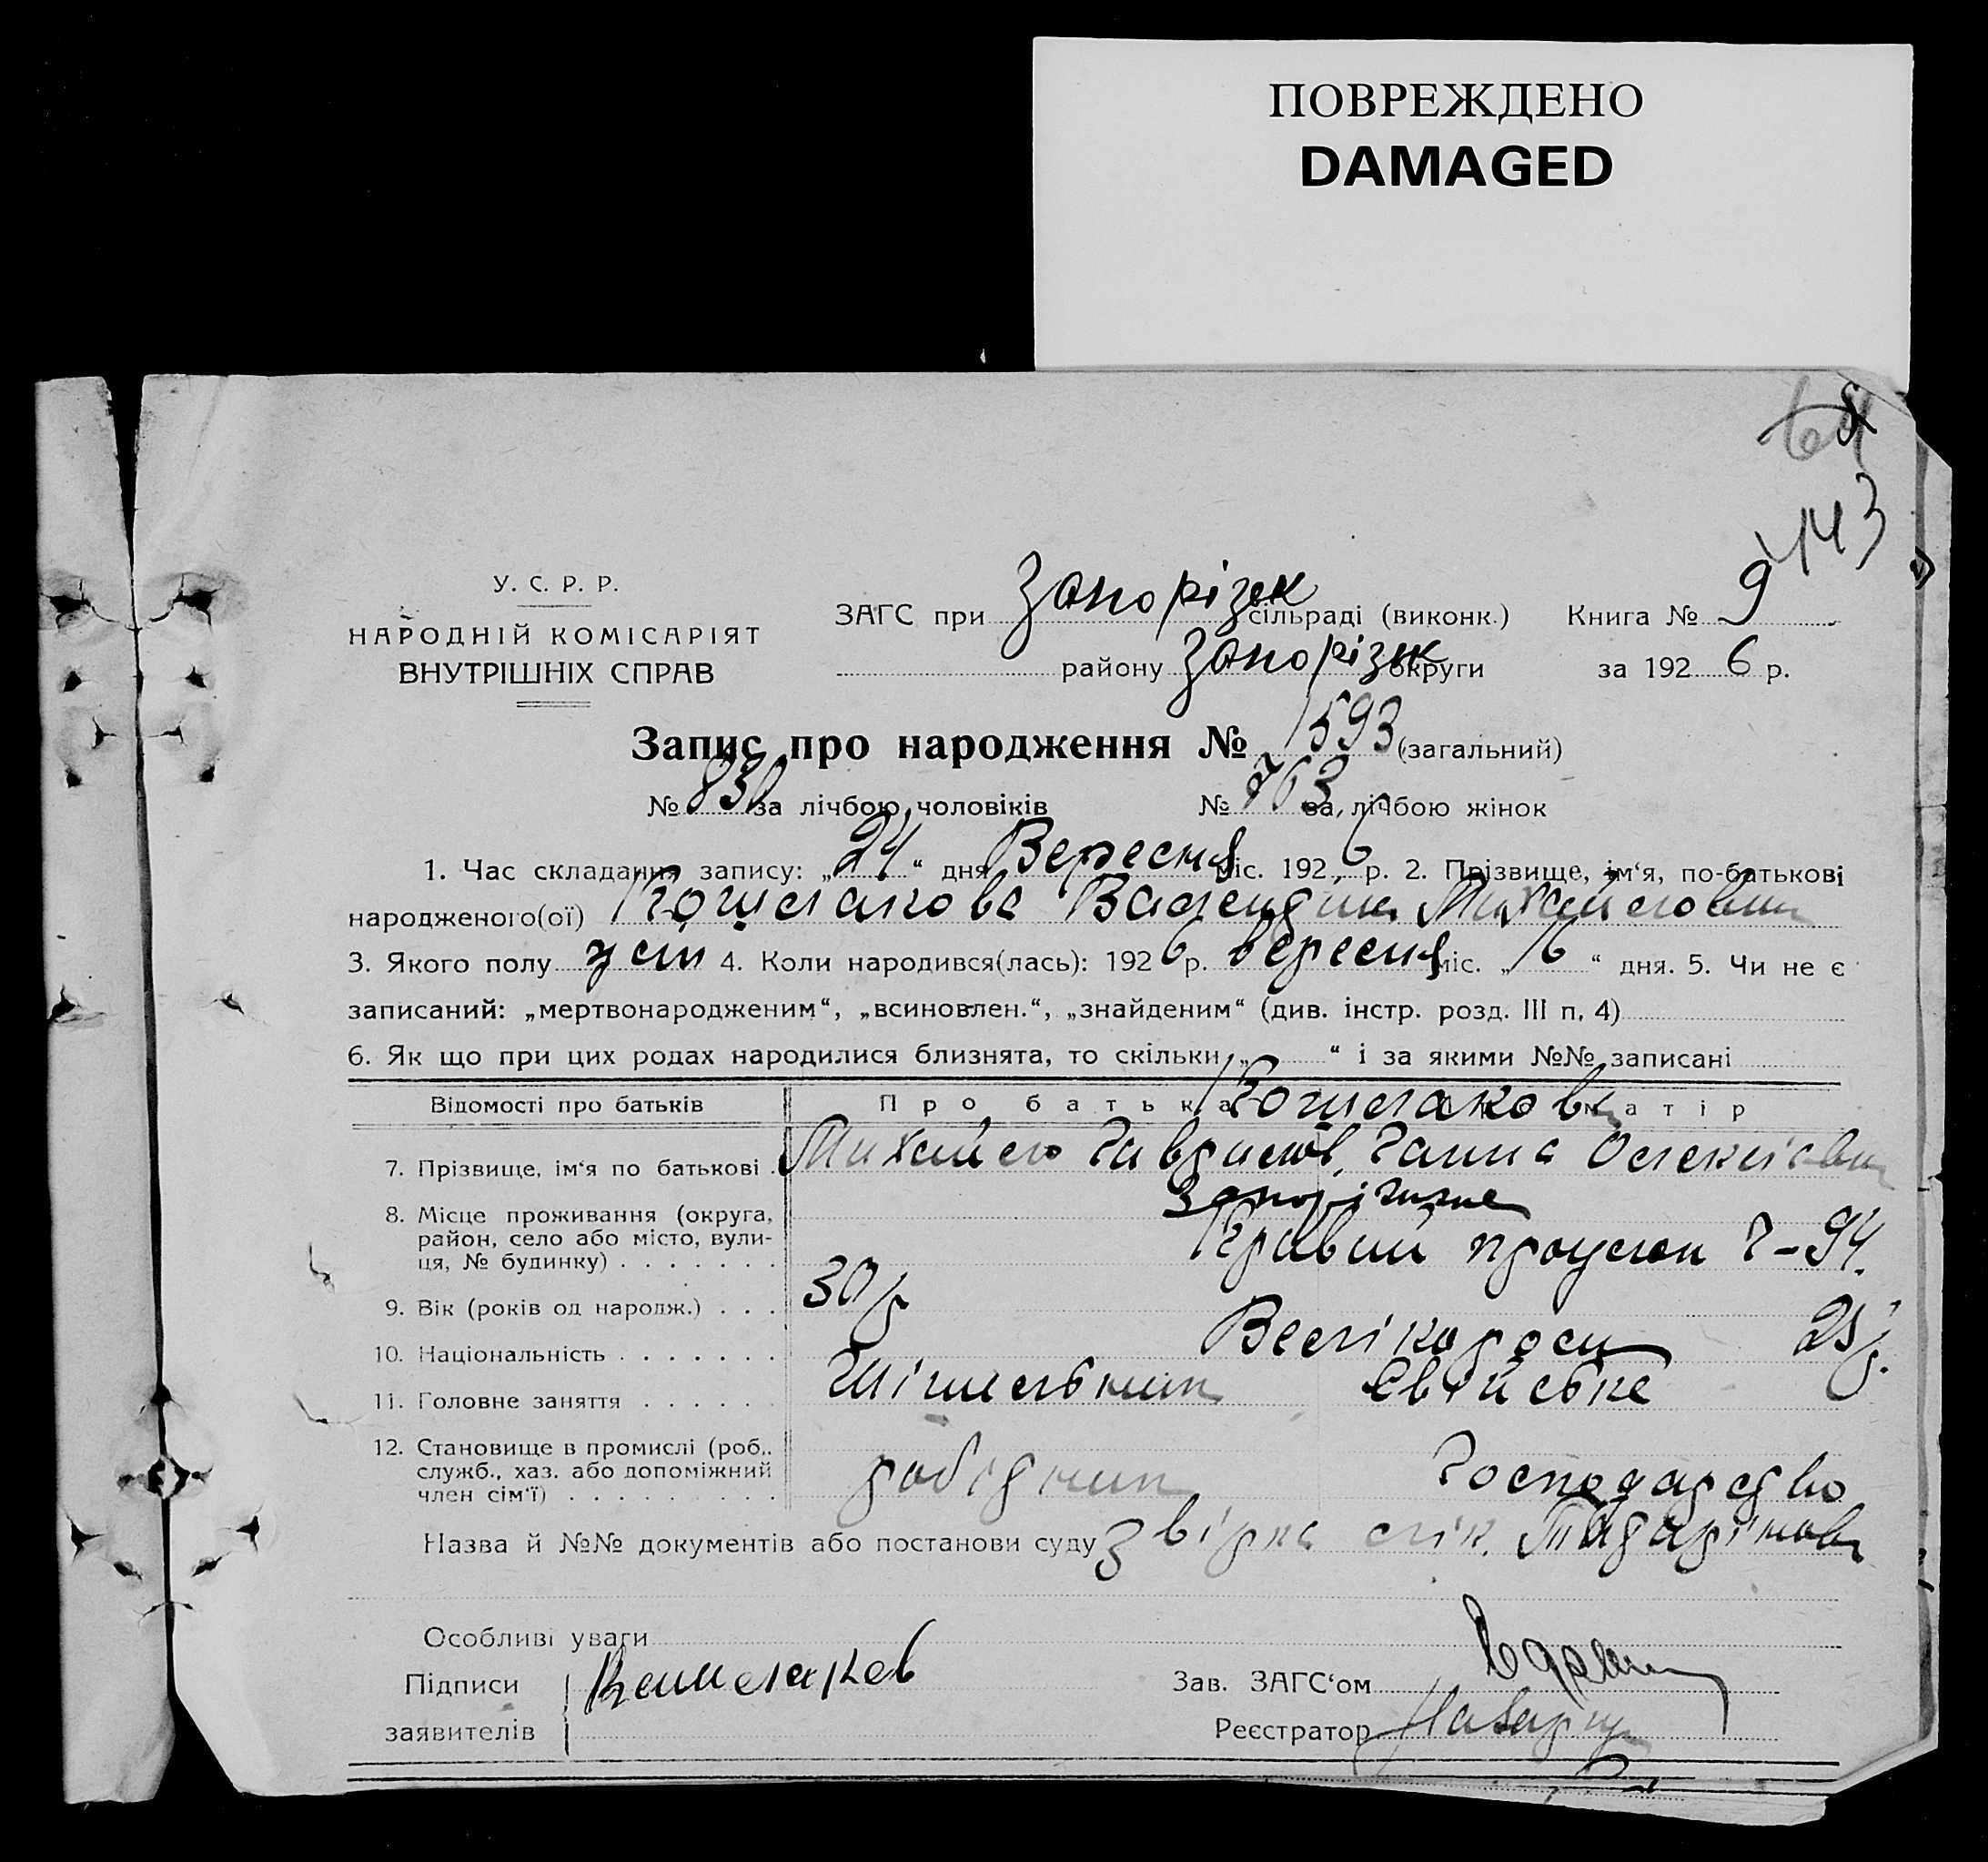 ПОВРЕЖДЕНО
DAMAGED
143
У. С. Р. Р.
НАРОДНІЙ КОМІСАРІЯТ
ВНУТРІШНІХ СПРАВ
ЗАГС при Запорізьк сільраді (виконк.) Книга № 9
району Запорізьк округи за 1926 р.
Запис про народження № 1593 (загальний)
№ 830 за лічбою чоловіків № 763 за лічбою жінок
1. Час складання запису: „24“ дня Вересня міс. 1926 р. 2. Прізвище, ім‘я, по-батькові
народженого(ої) Кошлакова Валендина Михайловна
3. Якого полу жен 4. Коли народився(лась): 1926 р. вересня міс. „16“ дня. 5. Чи не є
записаний: „мертвонародженим“, „всиновлен.“, „знайденим“ (див. інстр. розд. III п. 4)
6. Як що при цих родах народилися близнята, то скільки „ “ і за якими №№ записані
Відомості про батьків Про батька матір
Кошлакови
7. Прізвище, ім‘я по батькові Михайло Гаврилов. Ганна Олексіївна
8. Місце проживання (округа, район, село або місто, вулиця, № будинку) Запоріжже
Кривий 7-94.
9. Вік (років од народж.) 30 р 25 р.
10. Національність Велікороси
11. Головне заняття
12. Становище в промислі (роб., служб., хаз. або допоміжний член сім‘ї) робідник Господардво
Назва й №№ документів або постанови суду
Особливі уваги
Підписи Кошлаков Зав. ЗАГС‘ом
заявителів Реєстратор